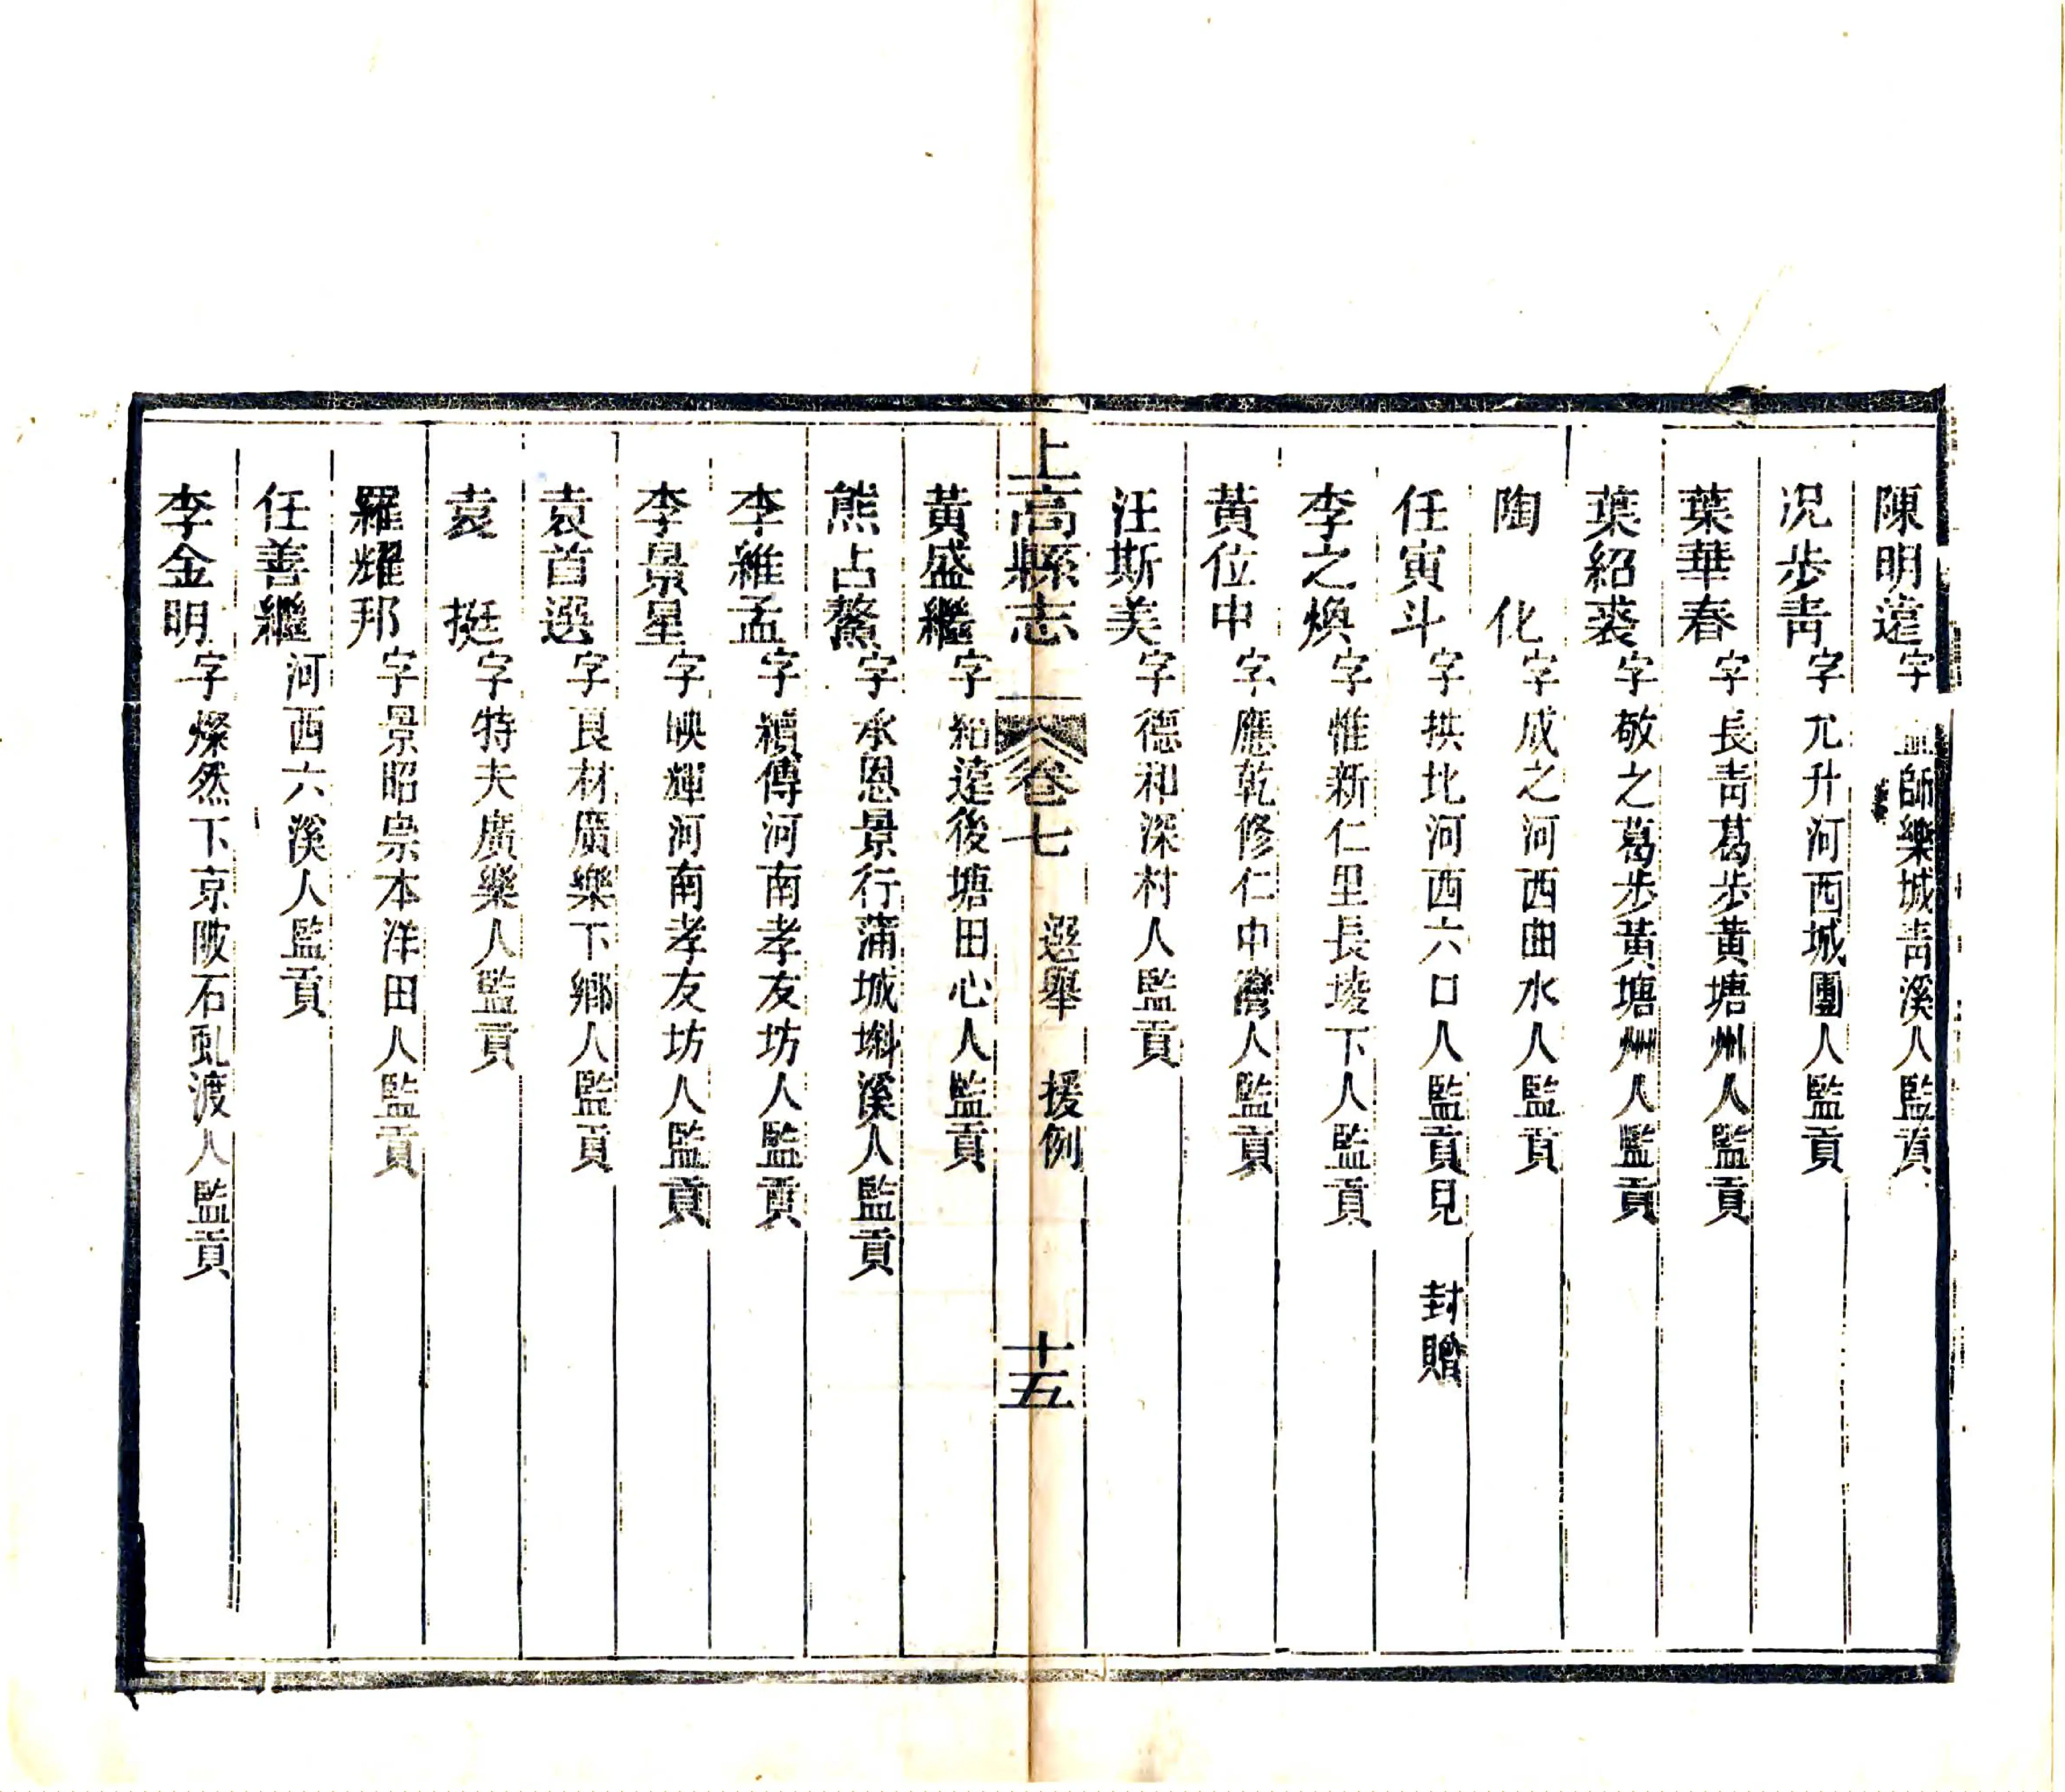 陳明遠字師樂城青溪人監貢
况步青字尤升河西城團人監貢
葉華春字長青葛步黃塘州人監貢
葉紹裘字敬之葛步黃塘州人監貢
陶化字成之河西曲水人監貢
任寅斗字拱北河西六口人監貢見封贈
李之煥字惟新仁里長堎下人監貢
黃位中字應乾修仁中灣人監貢
汪斯美字德和深村人監貢
上高縣志卷七選舉援例十五
黃盛繼字紹遠後塘田心人監貢
熊占鰲字承恩景行蒲城塅溪人監貢
李維孟字纘傳河南孝友坊人監貢
李景星字映輝河南孝友坊人監貢
袁首選字良材廣樂下鄉人監貢
袁挺字特夫廣樂人監貢
羅耀邦字景昭崇本洋田人監貢
任善繼河西六溪人監貢
李金明字燦然下京陂石虬渡人監貢